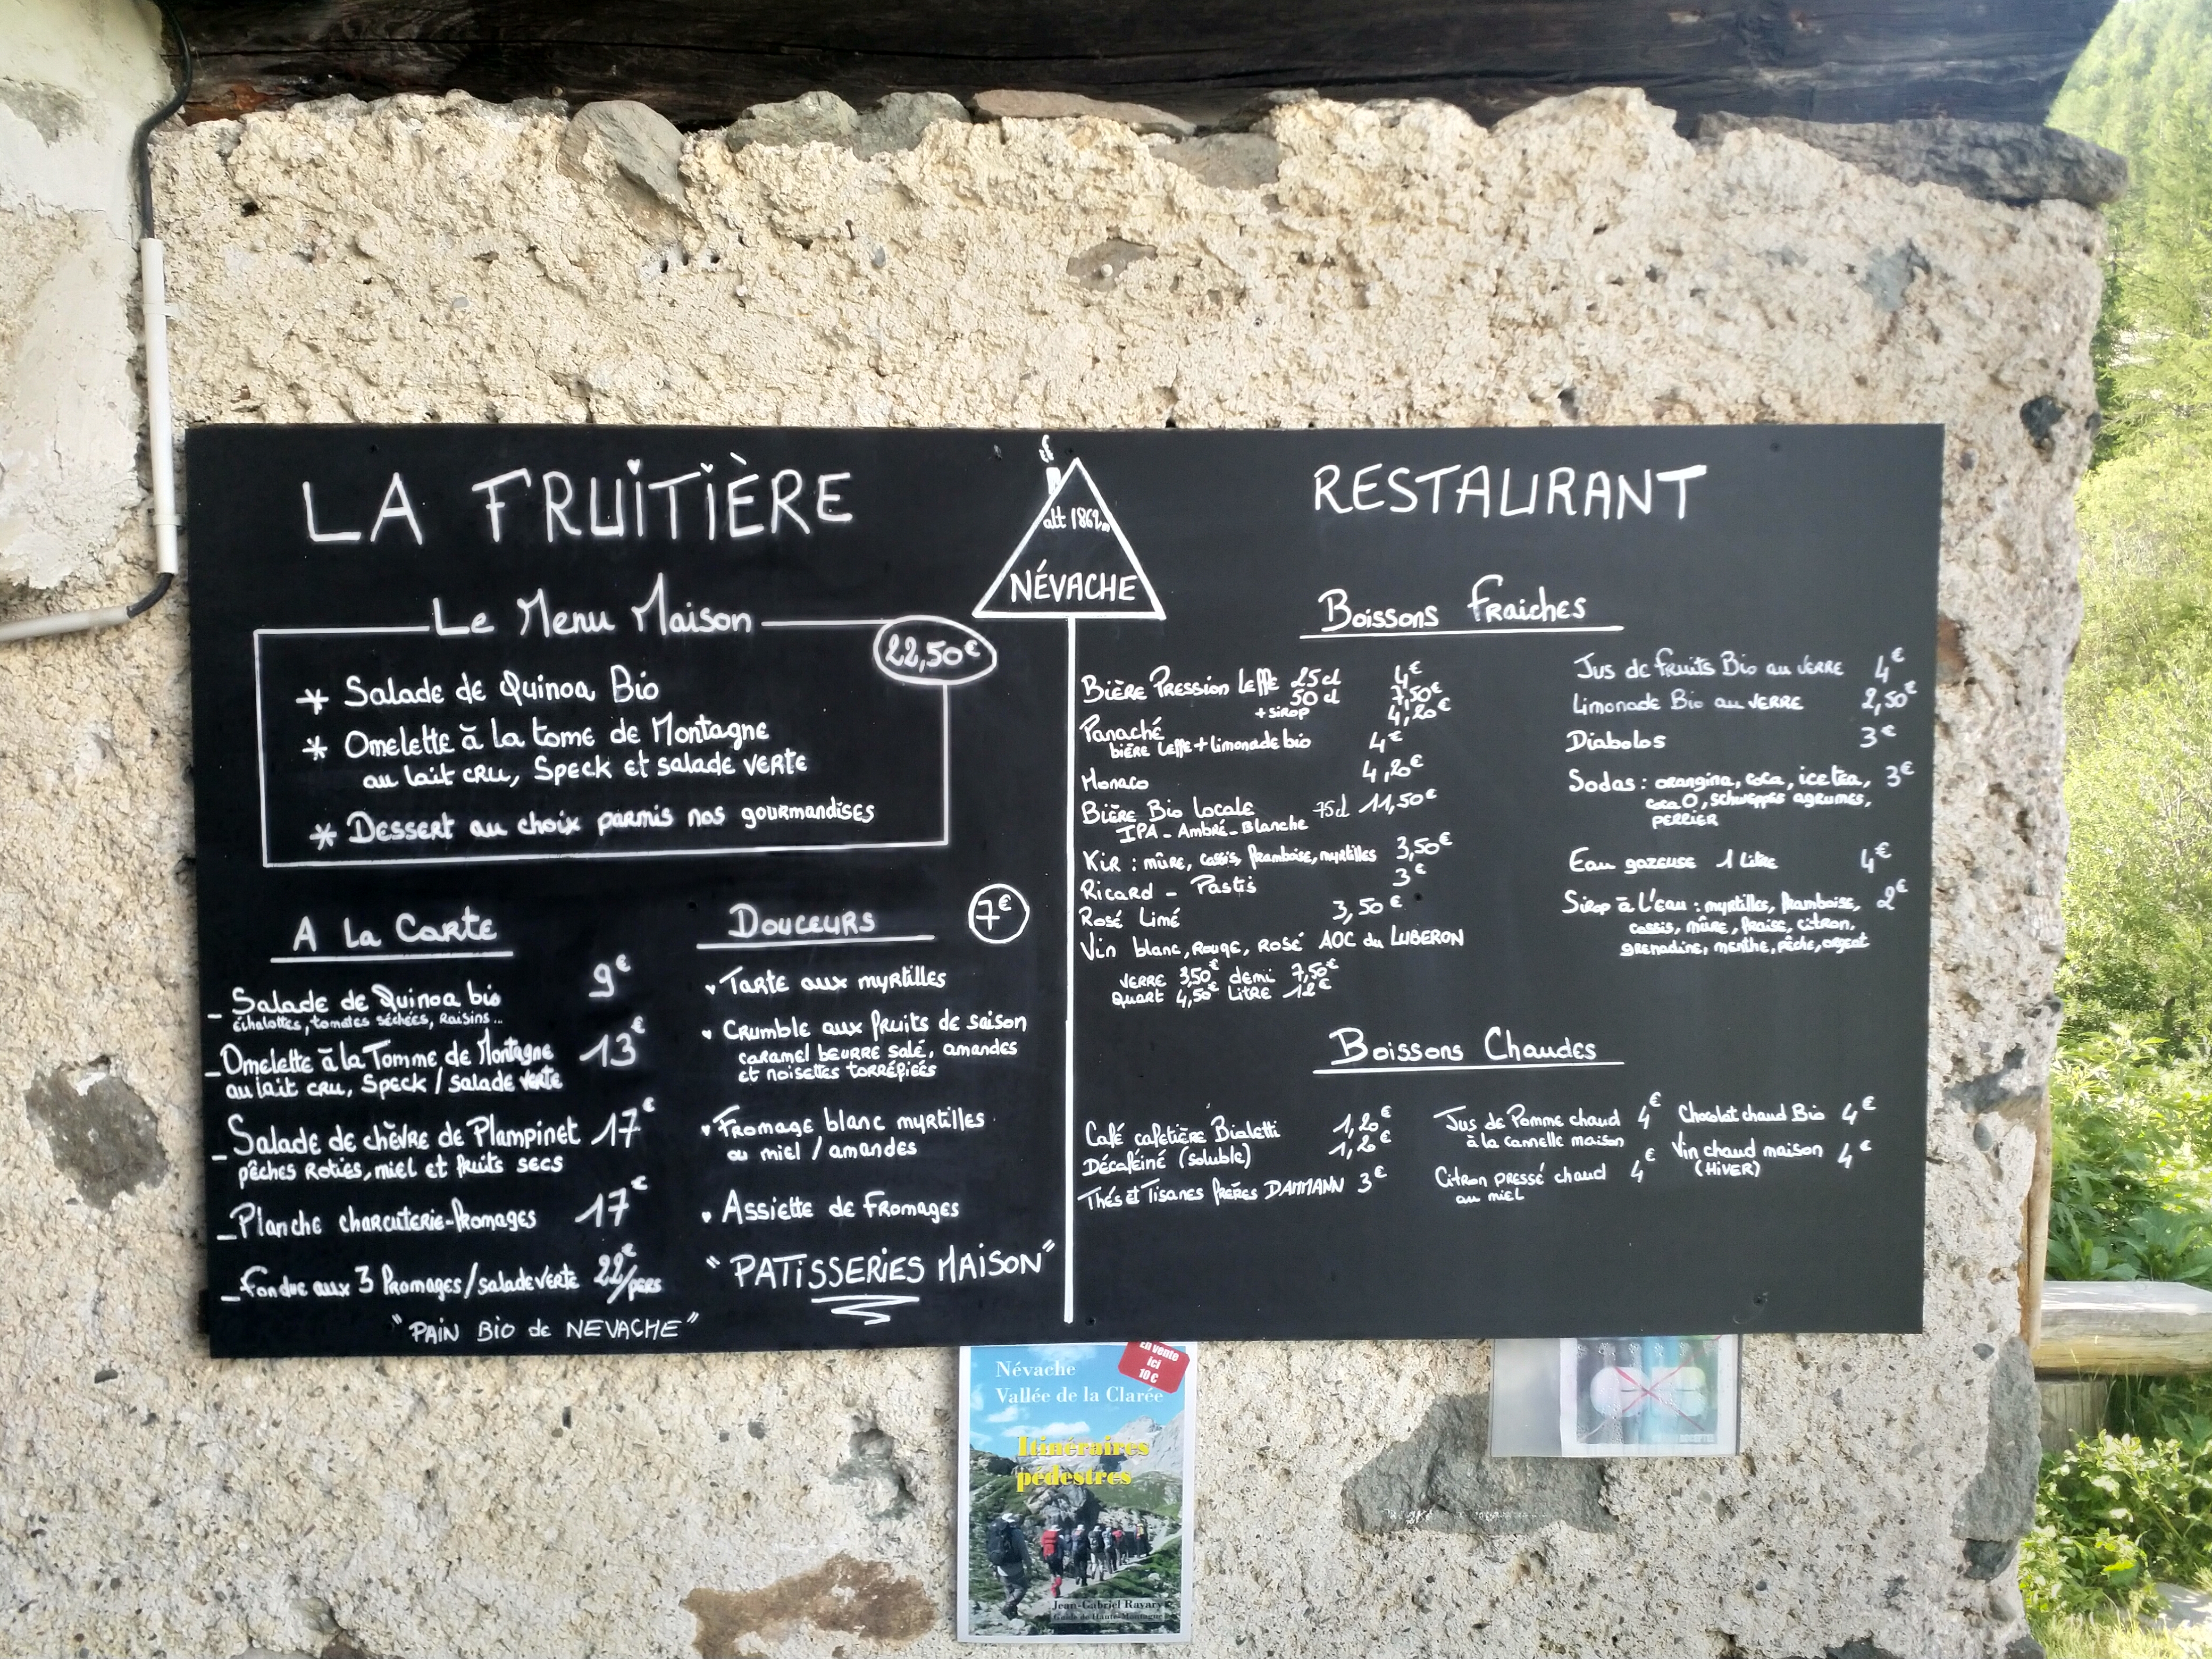 LA FRUITIÈRE
Le Menu Maison
22,50€
* Salade de Quinoa Bio
* Omelette à la tome de Montagne
au lait cru, Speck et salade verte
* Dessert au choix parmis nos gourmandises
A la Carte
_ Salade de Quinoa bio 9€
échalottes, tomates séchées, Raisins...
_ Omelette à la Tomme de Montagne 13€
au lait cru, Speck / salade verte
_ Salade de chèvre de Plampinet 17€
pêches Roties, miel et fruits secs
_ Planche charcuterie-fromages 17€
_ fondue aux 3 fromages / salade verte 22€/pers
"PAIN Bio de NEVACHE"
DOUCEURS 7€
Tarte aux myrtilles
Crumble aux fruits de saison
caramel beurre salé, amandes
et noisettes torréfiées
Fromage blanc myrtilles
ou miel / amandes
Assiette de Fromages
"PATISSERIES MAISON"
alt 1862m
NÉVACHE
RESTAURANT
Boissons Fraiches
Bière Pression Leffe 25cl 4€
50cl 7,50€
+ sirop 4,20€
Panaché
bière Leffe + limonade bio 4€
Monaco 4,20€
Bière Bio locale 75cl 11,50€
IPA - Ambré - Blanche
Kir : mûre, cassis, framboise, myrtilles 3,50€
Ricard - Pastis 3€
Rosé Limé 3,50€
Vin blanc, Rouge, Rosé AOC du LUBERON
verre 3,50€ demi 7,50€
quart 4,50€ Litre 12€
Jus de fruits Bio au verre 4€
Limonade Bio au verre 2,50€
Diabolos 3€
Sodas : orangina, coca, ice tea, 3€
coca 0, schweppes agrumes,
PERRIER
Eau gazeuse 1 Litre 4€
Sirop à L'eau : myrtilles, framboise, 2€
cassis, mûre, fraise, citron,
grenadine, menthe, pêche, orgeat
Boissons Chaudes
Café cafetière Bialetti 1,20€
Décaféiné (soluble) 1,20€
Thés et Tisanes frères DAMMANN 3€
Jus de Pomme chaud 4€
à la cannelle maison
Citron pressé chaud 4€
au miel
Chocolat chaud Bio 4€
Vin chaud maison 4€
(HIVER)
En vente
ici
10 €
Névache
Vallée de la Clarée
Itinéraires
pédestres
Jean-Gabriel Ravary
Guide de Haute-Montagne